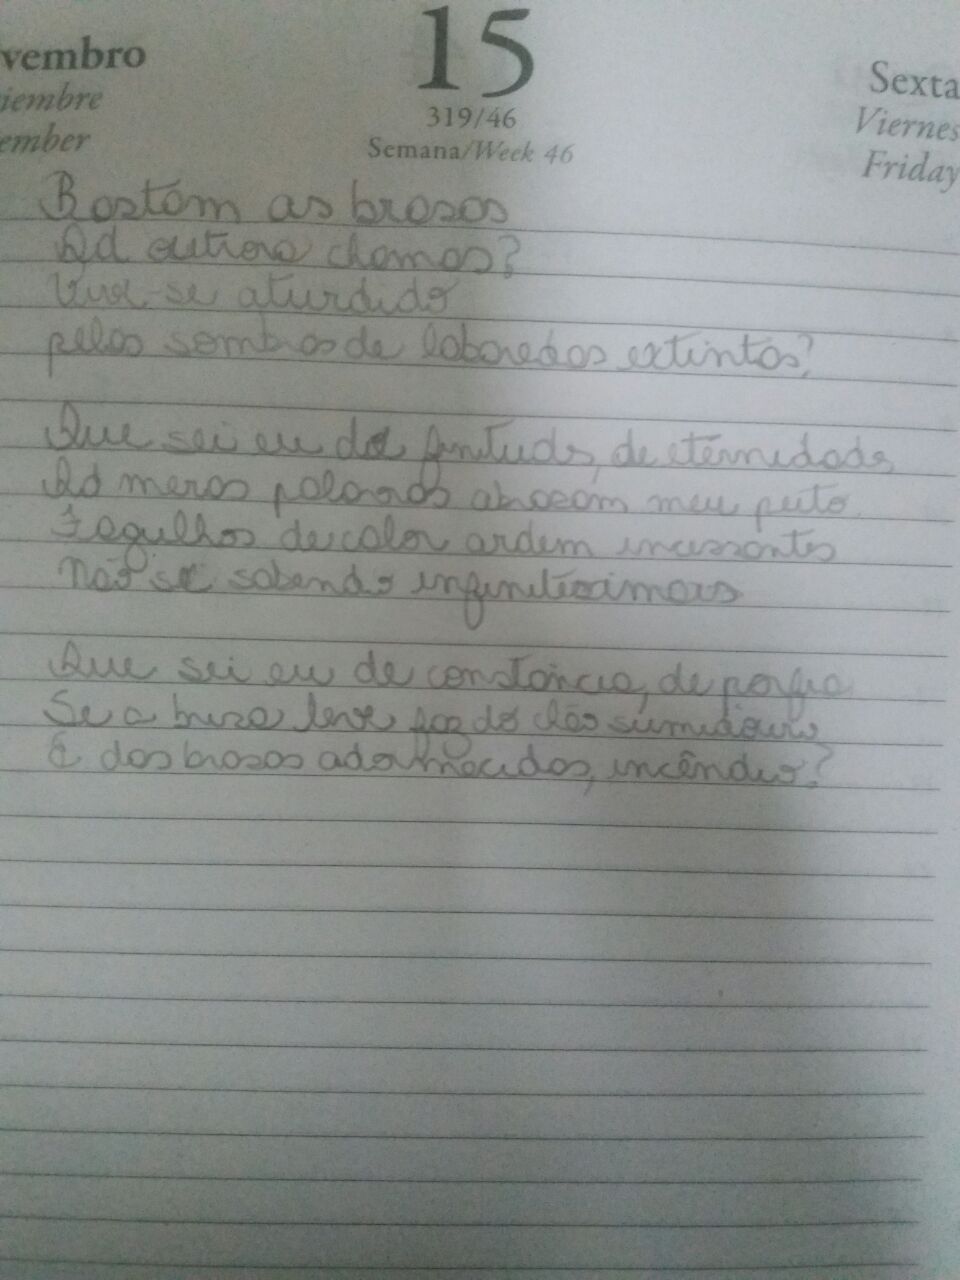 vembro
15
Sexta
iembre
319/46
Viernes
ember
Semana/Week 46
Friday
Bastam as brasas
chamas?
Vive-se aturdido
pelas sombras de labaredas extintas?
Que sei eu de finitude, de eternidade
meras palavras abrasam meu peito
Fagulhas de calor ardem incessantes
Não se sabendo infinitesimais
Que sei eu de constância, de porfia
Se a brisa leve faz do clão sumidouro
E das brasas adormecidas, incêndio?